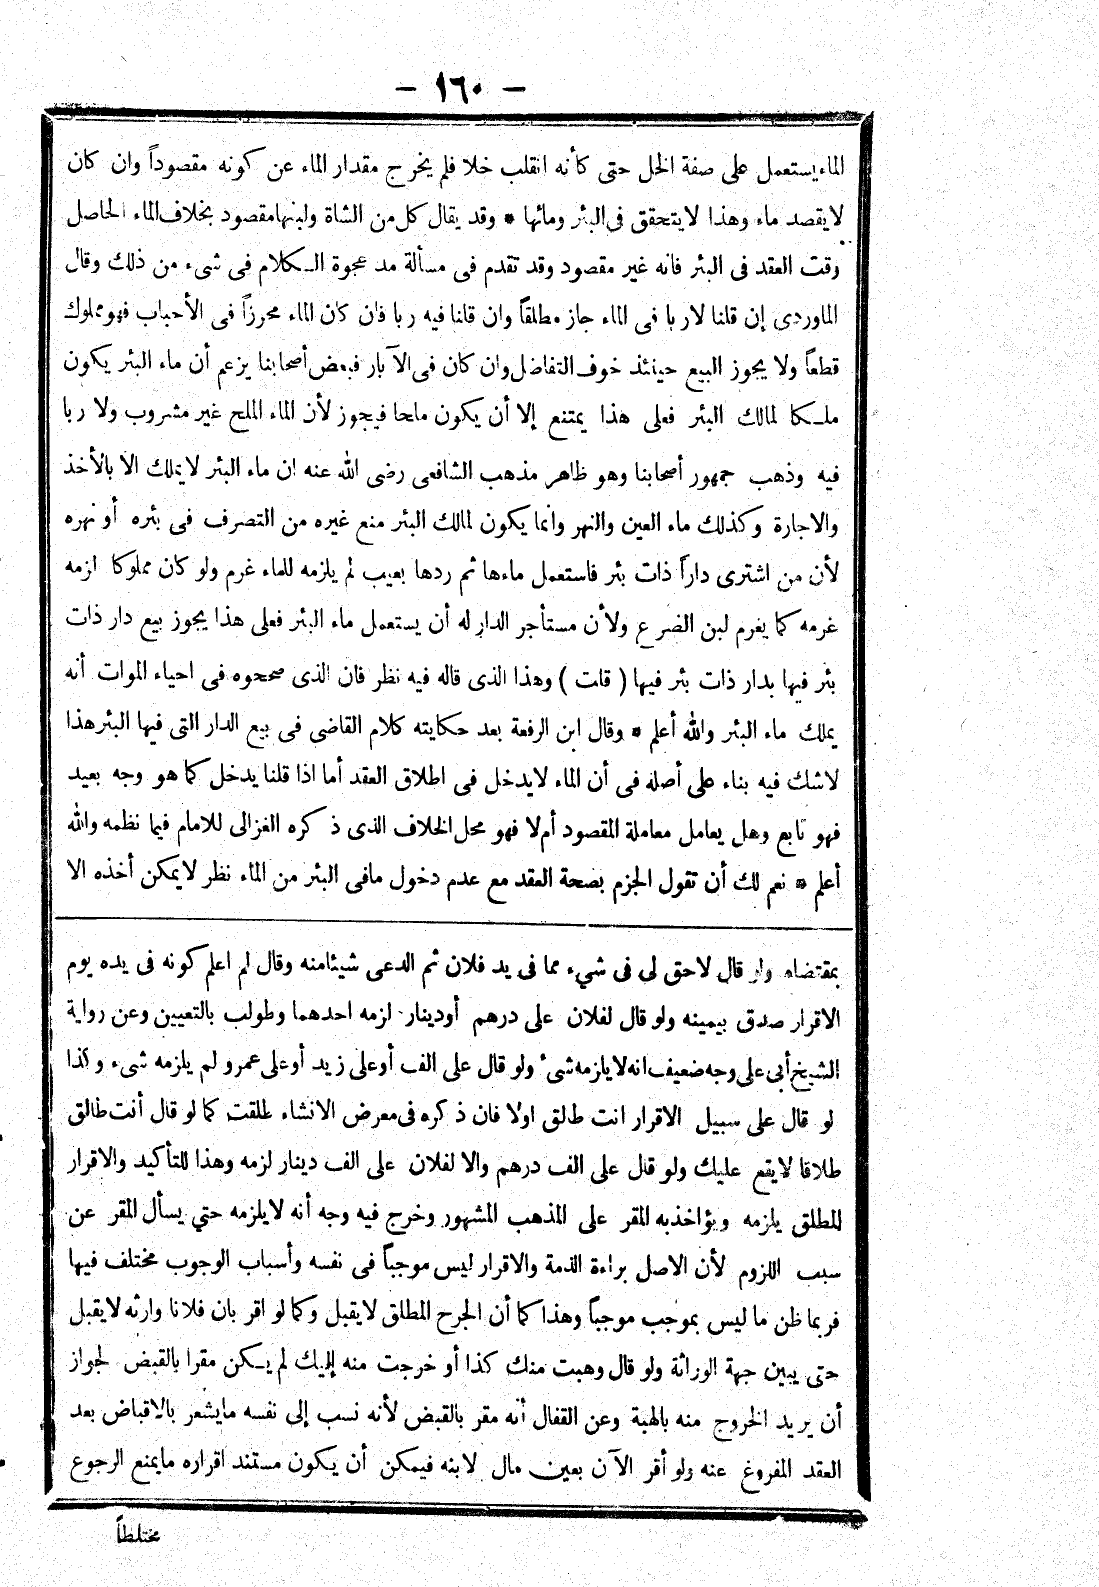 — ١٦٠ —
الماء يستعمل على صفة الخل حتى كأنه انقلب خلا فلم يخرج مقدار الماء عن كونه مقصوداً وان كان
لايقصد ماء وهذا لايتحقق فى البئر ومائها * وقد يقال كل من الشاة ولبنها مقصود بخلاف الماء الحاصل
وقت العقد فى البئر فانه غير مقصود وقد تقدم فى مسألة مد عجوة الكلام فى شىء من ذلك وقال
الماوردى إن قلنا لاربا فى الماء جاز مطلقاً وان قلنا فيه ربا فان كان الماء محرزاً فى الأحباب فهو مملوك
قطعاً ولا يجوز البيع حينئذ خوف التفاضل وان كان فى الآبار فبعض أصحابنا يزعم أن ماء البئر يكون
ملكا لمالك البئر فعلى هذا يمتنع إلا أن يكون ملحا فيجوز لأن الماء الملح غير مشروب ولا ربا
فيه وذهب جمهور أصحابنا وهو ظاهر مذهب الشافعى رضى الله عنه ان ماء البئر لايملك الا بالأخذ
والاجازة وكذلك ماء العين والنهر وانما يكون لمالك البئر منع غيره من التصرف فى بئره أو نهره
لأن من اشترى داراً ذات بئر فاستعمل ماءها ثم ردها بعيب لم يلزمه للماء غرم ولو كان مملوكا لزمه
غرمه كما يغرم لبن الضرع ولأن مستأجر الدار له أن يستعمل ماء البئر فعلى هذا يجوز بيع دار ذات
بئر فيها بدار ذات بئر فيها ( قلت ) وهذا الذى قاله فيه نظر فان الذى صححوه فى احياء الموات أنه
يملك ماء البئر والله أعلم * وقال ابن الرفعة بعد حكايته كلام القاضى فى بيع الدار التى فيها البئر هذا
لاشك فيه بناء على أصله فى أن الماء لايدخل فى اطلاق العقد أما اذا قلنا يدخل كما هو وجه بعيد
فهو تابع وهل يعامل معاملة المقصود أم لا فهو محل الخلاف الذى ذكره الغزالى للامام فيما نظمه والله
أعلم * نعم لك أن تقول الجزم بصحة العقد مع عدم دخول مافى البئر من الماء نظر لايمكن أخذه الا
بمقتضاه ولو قال لاحق لى فى شيء مما فى يد فلان ثم ادعى شيئا منه وقال لم اعلم كونه فى يده يوم
الاقرار صدق بيمينه ولو قال لفلان على درهم أودينار لزمه احدهما وطولب بالتعيين وعن رواية
الشيخ أبى على وجه ضعيف انه لايلزمه شىء ولو قال على الف أو على زيد أو على عمرو لم يلزمه شىء وكذا
لو قال على سبيل الاقرار انت طالق اولا فان ذكره فى معرض الانشاء طلقت كما لو قال أنت طالق
طلاقا لايقع عليك ولو قال على الف درهم والا لفلان على الف دينار لزمه وهذا للتأكيد والاقرار
المطلق يلزمه ويؤاخذ به المقر على المذهب المشهور وخرج فيه وجه أنه لايلزمه حتي يسأل المقر عن
سبب اللزوم لأن الاصل براءة الذمة والاقرار ليس موجباً فى نفسه وأسباب الوجوب مختلف فيها
فربما ظن ما ليس بموجب موجباً وهذا كما أن الجرح المطلق لايقبل وكما لو اقر بان فلانا وارثه لايقبل
حتى يبين جهة الوراثة ولو قال وهبت منك كذا أو خرجت منه إليك لم يكن مقرا بالقبض لجواز
أن يريد الخروج منه بالهبة وعن القفال أنه مقر بالقبض لأنه نسب إلى نفسه مايشعر بالاقباض بعد
العقد المفروغ عنه ولو أقر الآن بعين مال لابنه فيمكن أن يكون مستند اقراره مايمنع الرجوع
مختلطاً